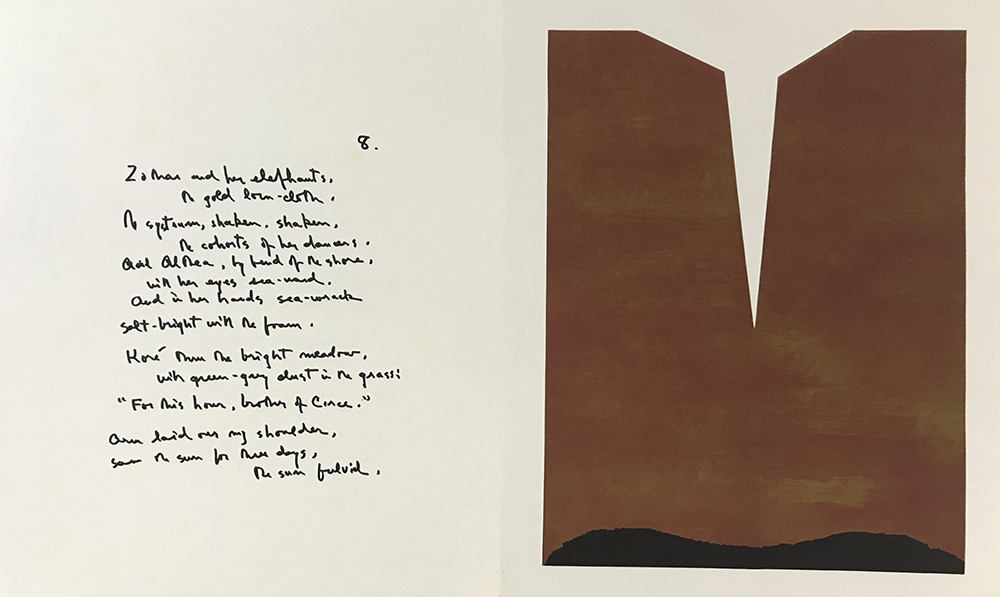 8.
Zothar and her elephants,
the gold loin-cloth.
The systrum, shaken, shaken,
the cohorts of her dancers.
And Althea, by bend of the shore,
with her eyes sea-ward,
And in her hands sea-wrack
salt-bright with the foam.
Koré thru the bright meadow,
with green-grey dust in the grass:
"For this hour, brother of Circe."
Arm laid over my shoulder,
saw the sun for three days,
the sun fulvid,